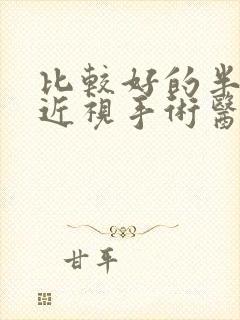 比較好的半
近視手術醫
甘平